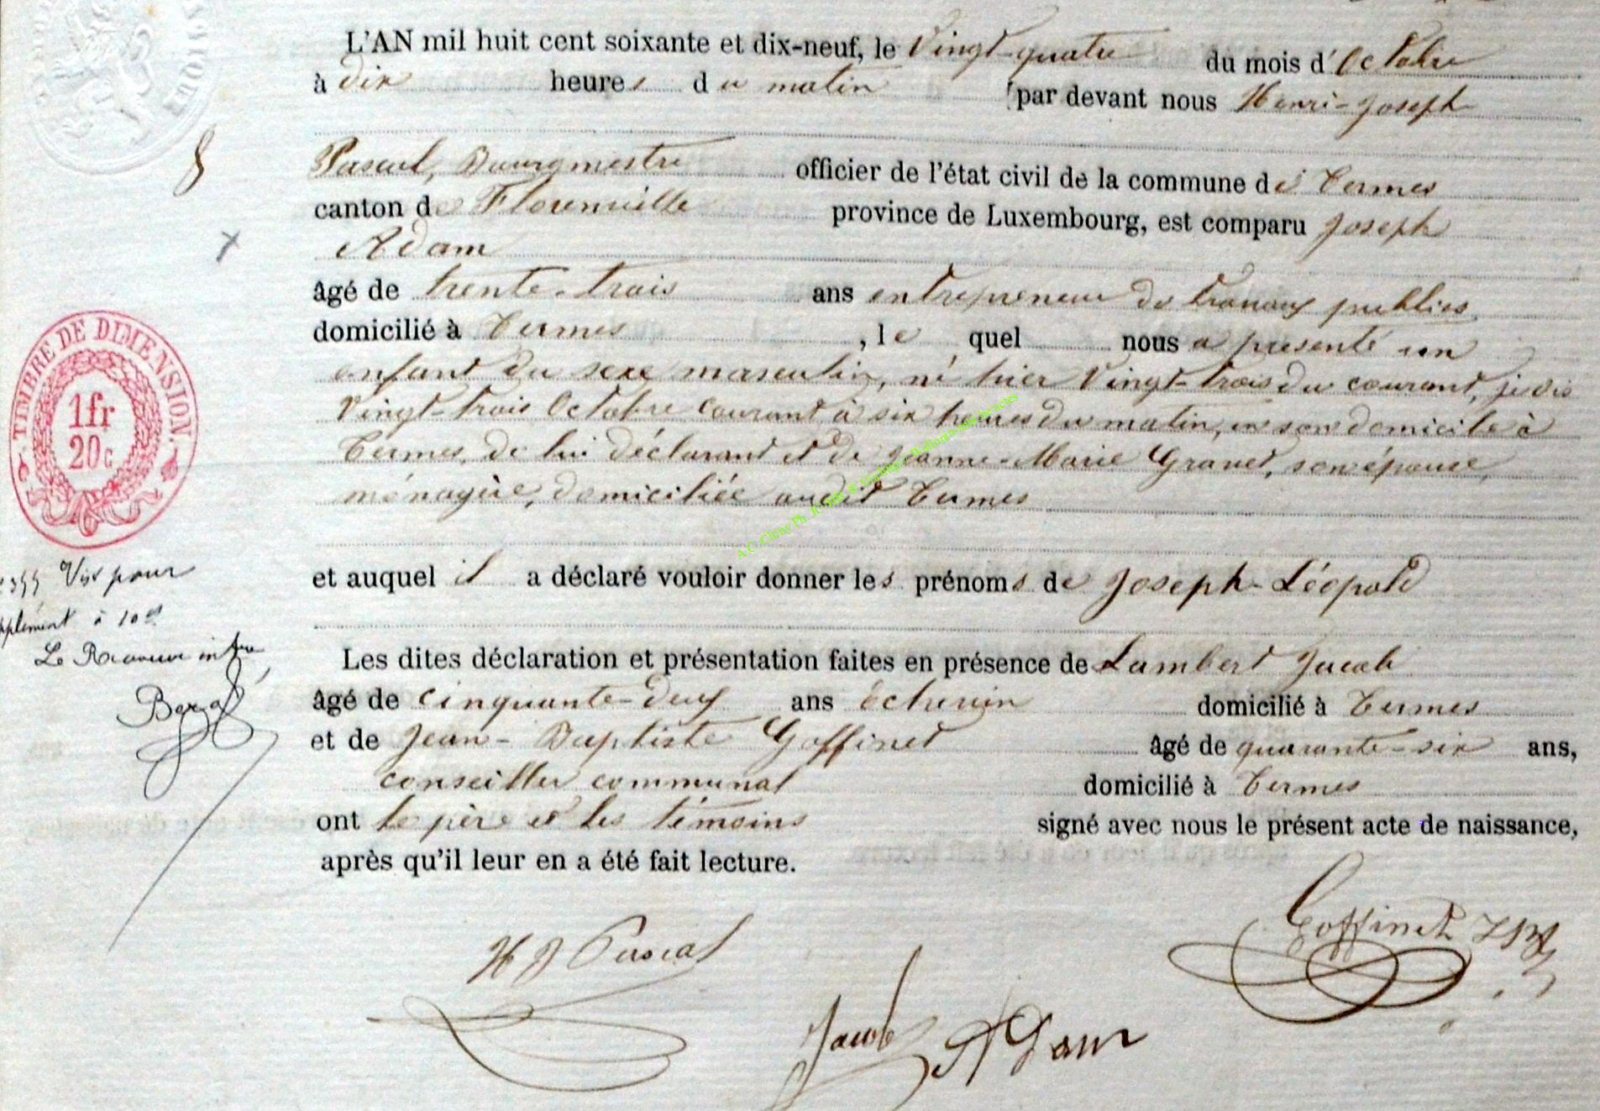 L'AN mil huit cent soixante et dix-neuf, le Vingt-quatre du mois d'Octobre
à dix heures du matin par devant nous Henri-Joseph
8
Pascal, Bourgmestre officier de l'état civil de la commune de Termes
canton de Florenville province de Luxembourg, est comparu Joseph
Adam
âgé de trente-trois ans entrepreneur de travaux publics
domicilié à Termes, le quel nous a présenté un
enfant du sexe masculin, né hier Vingt-trois du courant, je dis
Vingt-trois Octobre courant à six heures du matin, en son domicile à
Termes, de lui déclarant et de Jeanne-Marie Gravet, son épouse,
ménagère, domiciliée audit Termes
et auquel il a déclaré vouloir donner les prénoms de Joseph-Léopold
Les dites déclaration et présentation faites en présence de Lambert Jacob
âgé de cinquante-deux ans échevin domicilié à Termes
et de Jean-Baptiste Goffinet âgé de quarante-six ans,
conseiller communal domicilié à Termes
ont le père et les témoins signé avec nous le présent acte de naissance,
après qu'il leur en a été fait lecture.
TIMBRE DE DIMENSION.
1fr
20c
Vis pour
à 10
Le Receveur
H J Pascal
Goffinet JB
Jacob
A Dam